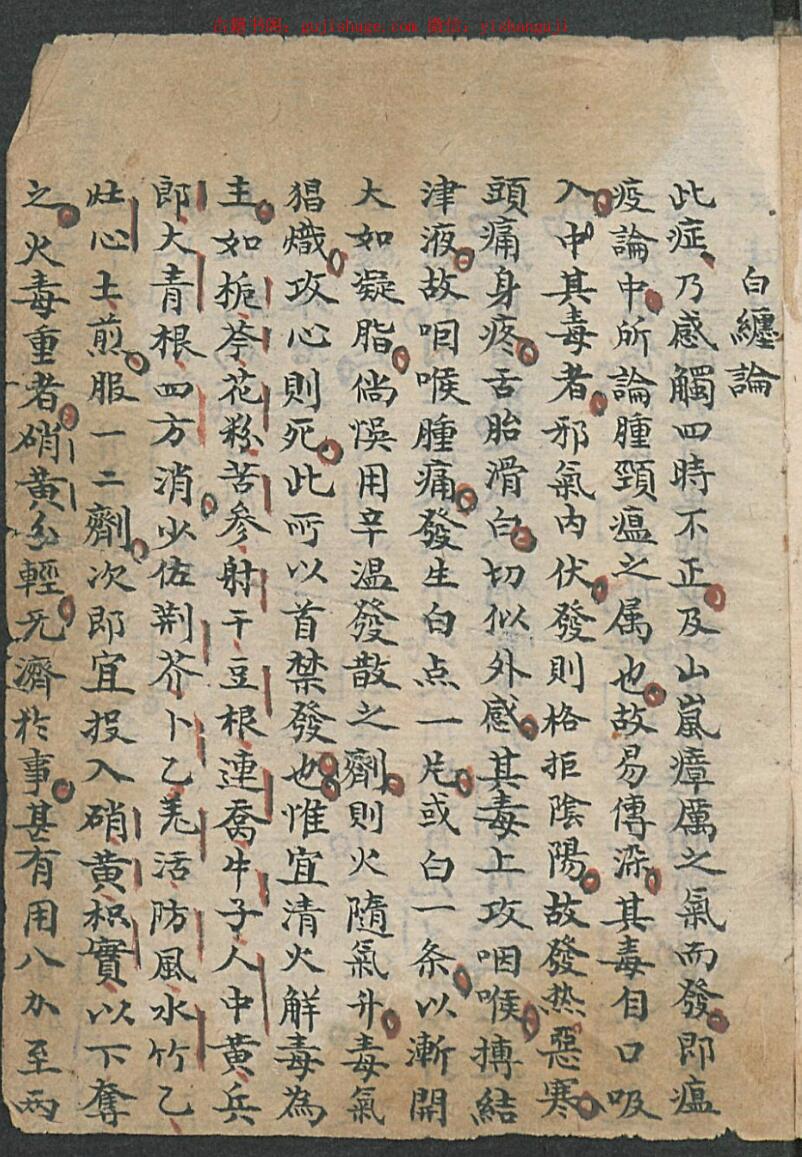 古籍书阁：gujishuge.com 微信：yishanguji
白纏論
此症乃感觸四時不正及山嵐瘴厲之氣而發即瘟
疫論中所論腫頸瘟之属也故易傳染其毒自口吸
入中其毒者邪氣内伏發則格拒陰陽故發热惡寒
頭痛身疼舌胎滑白切似外感其毒上攻咽喉搏結
津液故咽喉腫痛發生白点一片或白一条以漸開
大如凝脂倘悞用辛温發散之劑則火隨氣升毒氣
猖熾攻心則死此所以首禁發也惟宜清火解毒為
主如栀芩花粉苦参射干豆根連喬牛子人中黄兵
郎大青根四方消少佐荆芥卜乙羌活防風水竹乙
灶心土煎服一二劑次即宜投入硝黄枳實以下奪
之火毒重者硝黄分輕无濟於事甚有用八分至兩